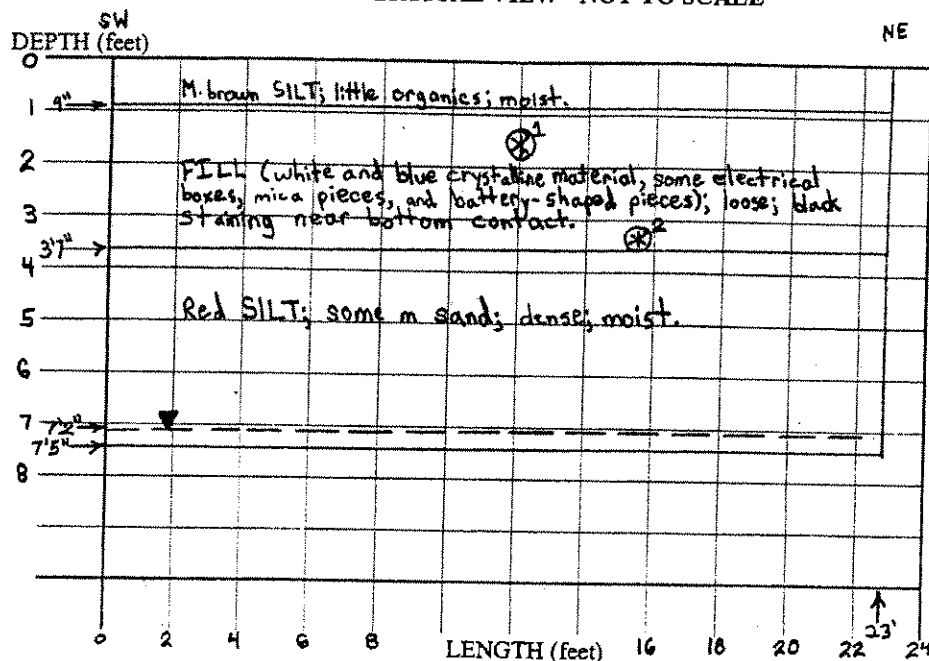 VERTICAL VIEW - NOT TO SCALE
SW
NE
DEPTH (feet)
0
M. brown SILT; little organics; moist.
1 9"
1
2
FILL (white and blue crystalline material, some electrical
boxes, mica pieces, and battery-shaped pieces); loose; black
3
staining near bottom contact.
2
3'7"
4
Red SILT; some m sand; dense; moist.
5
6
7
7'2"
7'5"
8
23'
0 2 4 6 8 LENGTH (feet) 16 18 20 22 24